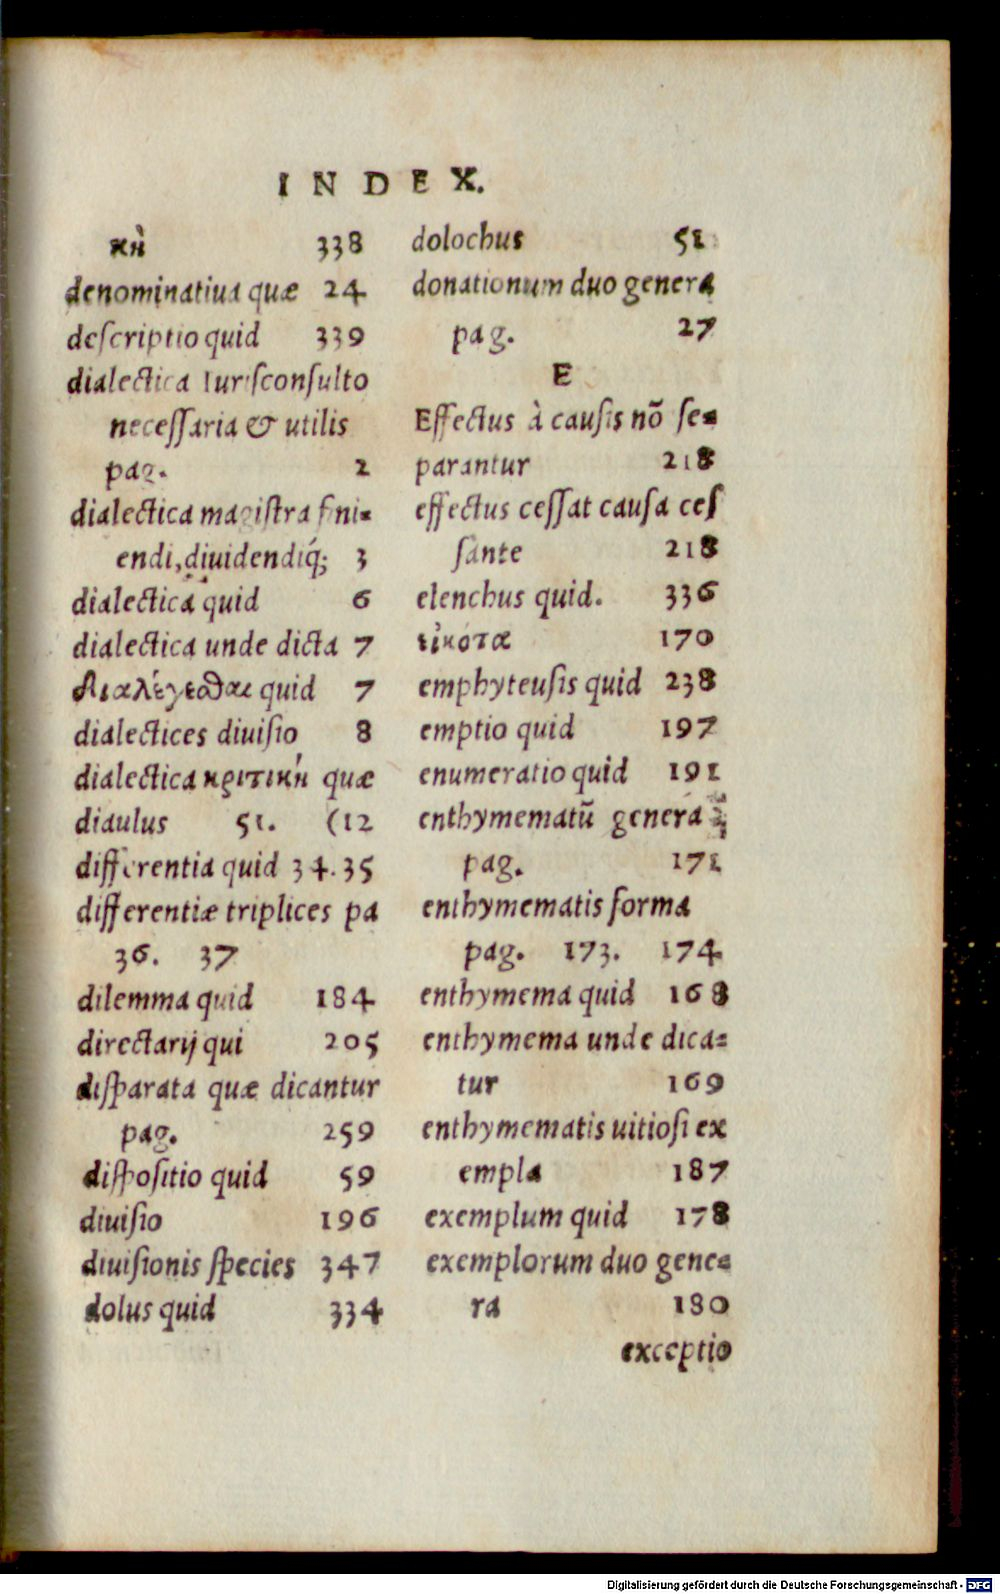 INDEX.
κὴ 338
denominatiua quæ 24
descriptio quid 339
dialectica Iurisconsulto
necessaria & utilis
pag. 2
dialectica magistra fini-
endi, diuidendiq́; 3
dialectica quid 6
dialectica unde dicta 7
διαλέγεσθαι quid 7
dialectices diuisio 8
dialectica κριτικὴ quæ
diaulus 51. (12
differentia quid 34.35
differentiæ triplices pa
36. 37
dilemma quid 184
directarij qui 205
disparata quæ dicantur
pag. 259
dispositio quid 59
diuisio 196
diuisionis species 347
dolus quid 334
dolochus 51
donationum duo genera
pag. 27
E
Effectus à causis nõ se-
parantur 218
effectus cessat causa ces
sante 218
elenchus quid. 336
εἰκοτα 170
emphyteusis quid 238
emptio quid 197
enumeratio quid 191
enthymematũ genera
pag. 171
enthymematis forma
pag. 173. 174
enthymema quid 168
enthymema unde dica-
tur 169
enthymematis uitiosi ex
empla 187
exemplum quid 178
exemplorum duo gene-
ra 180
exceptio
Digitalisierung gefördert durch die Deutsche Forschungsgemeinschaft - DFG